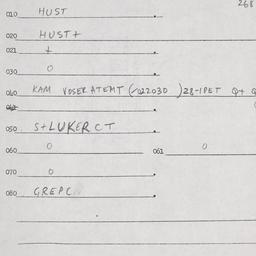 268
010 HUST
020 HUST+
021 +
030 0
040 KAM VOSER ATEMT (/022030 )28-1PET Q+ Q
042
050 S+LUKER CT
060 0 061 0
070 0
080 GREPC